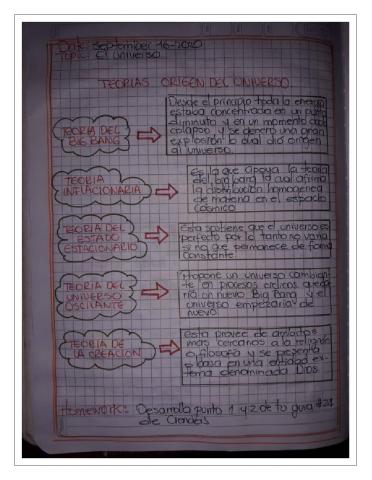 Date: September 16-2020
Topic: El universo
TEORIAS ORIGEN DEL UNIVERSO
TEORIA DEL
BIG BANG
Desde el principio toda la energia
estaba concentrada en un punto
diminuto y en un momento dado
colapso, y se genero una gran
explosion lo cual dio origen
al universo.
TEORIA
INFLACIONARIA
Es la que apoya la teoria
del big bang la cual afirma
la distribucion homogenea
de materia en el espacio
cosmico
TEORIA DEL
ESTADO
ESTACIONARIO
Esta sostiene que el universo es
perfecto por lo tanto no varia
si no que permanece de forma
constante.
TEORIA DEL
UNIVERSO
OSCILANTE
Propone un universo cambian-
te en procesos ciclicos
ria un nuevo Big Bang y el
universo empezaria de
nuevo.
TEORIA DE
LA CREACION
Esta provee de ambitos
mas cercanos a la religion
o filosofia y se presenta
o basa en una entidad ex-
terna denominada Dios.
Homework: Desarrolla punto 1 y 2 de tu guia #21
de Ciencias